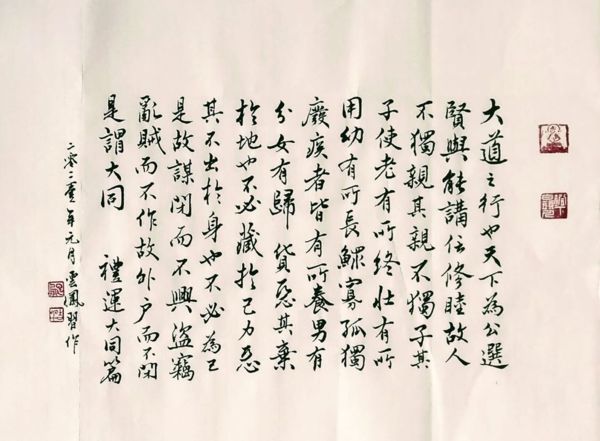 大道之行也天下為公選
賢與能講信修睦故人
不獨親其親不獨子其
子使老有所終壯有所
用幼有所長鰥寡孤獨
廢疾者皆有所養男有
分女有歸 貨惡其棄
於地也不必藏於己力惡
其不出於身也不必為己
是故謀閉而不興盜竊
亂賊而不作故外戶而不閉
是謂大同 禮運大同篇
年元月雲鳳習作